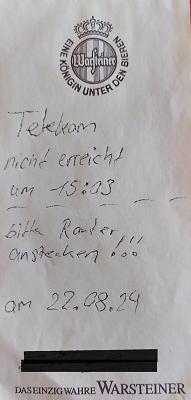 EINE KÖNIGIN UNTER DEN BIEREN
Warsteiner
Telekom
nicht erreicht
um 15:03
bitte Router
anstecken !!!
am 22.08.24
DAS EINZIG WAHRE WARSTEINER